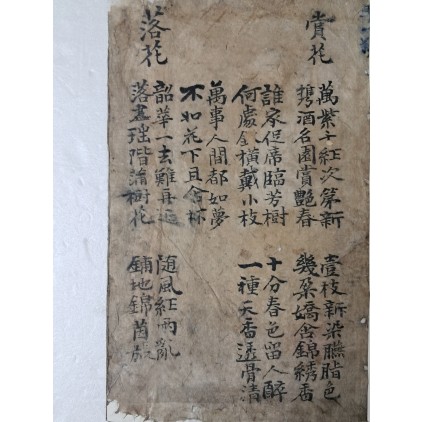 賞花
萬紫千紅次第新 壹枝新染臙脂色
携酒名園賞艷春 幾朶嬌含錦綉香
誰家促席臨芳樹 十分春色留人醉
何處金橫戴小枝 一種天香透骨清
萬事人間都如夢
不如花下且含杯
落花
韶華一去難再 随風紅雨亂
落盡瑶階滿樹花 鋪地錦茵